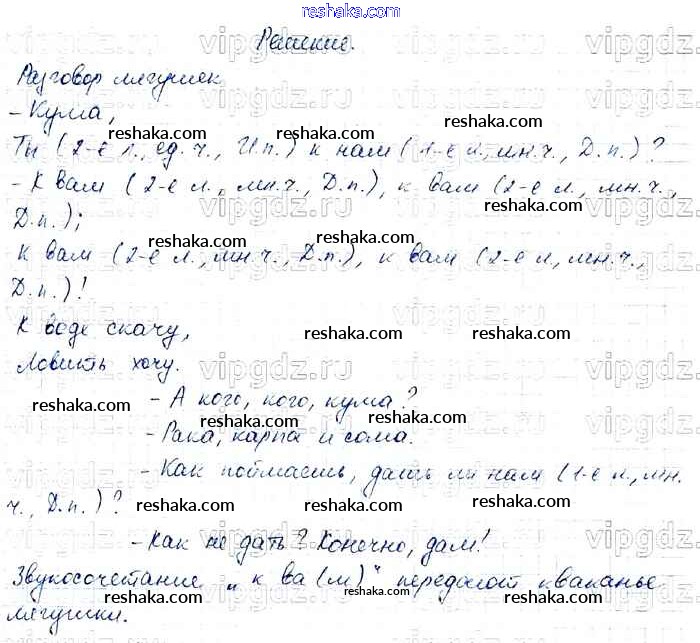 reshaka.com
Решение.
Разговор лягушек
- Кума,
reshaka.com reshaka.com
Ты (2-е л., ед. ч., И.п.) к нам (1-е л., мн.ч., Д.п.)?
- К вам (2-е л., мн.ч., Д.п.), к вам (2-е л., мн.ч.,
reshaka.com reshaka.com
Д.п.);
reshaka.com
К вам (2-е л., мн.ч., Д.п.), к вам (2-е л., мн.ч.,
Д.п.)!
reshaka.com reshaka.com
К воде скачу,
reshaka.com reshaka.com
Ловить хочу.
- А кого, кого, кума?
reshaka.com reshaka.com
- Рака, карпа и сома.
reshaka.com reshaka.com
- Как поймаешь, дашь ли нам (1-е л., мн.
ч., Д.п.)?
reshaka.com reshaka.com
- Как не дать? Конечно, дам!
Звукосочетание „к ва(м)" передают кваканье
reshaka.com reshaka.com
лягушки.
reshaka.com
vipgdz.ru vipgdz.ru vipgdz.ru